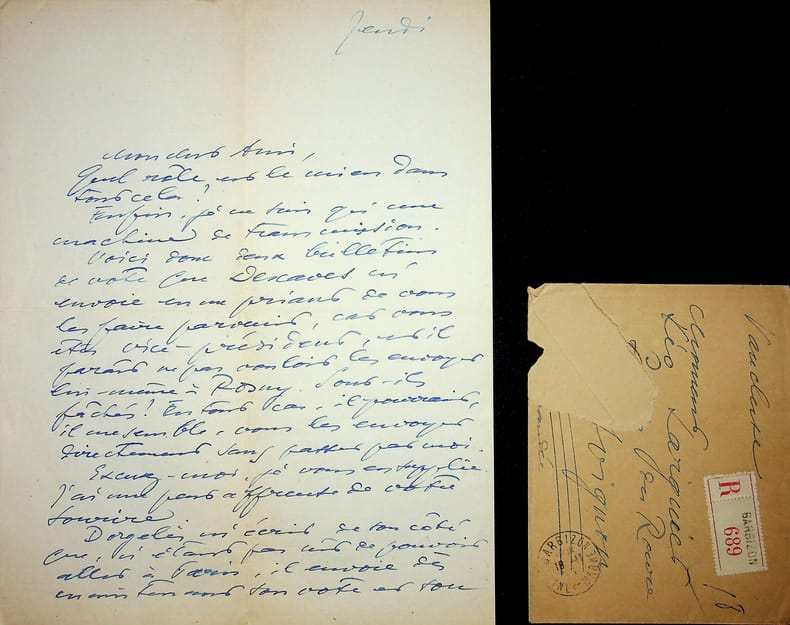 Jeudi
Mon cher Ami,
Quel rôle est le mien dans
tout cela ?
Enfin, je ne suis qu'une
machine de transmission.
Voici donc deux bulletins
de vote que Descaves m'
envoie en me priant de vous
les faire parvenir, car vous
êtes vice-président, et il
paraît ne pas vouloir les envoyer
lui-même à Rosny. Sont-ils
fâchés ? En tout cas, il pourrait,
il me semble, vous les envoyer
directement sans passer par moi.
Excusez-moi, je vous en supplie.
J'ai une peur affreuse de votre
sourire.
Dorgelès m'écrit de son côté
que, n'étant pas sûr de pouvoir
aller à Paris, il envoie dès
maintenant son vote et son
Vaucluse
Léo Larguier
Avignon
R
BARBIZON
689
18
BARBIZON